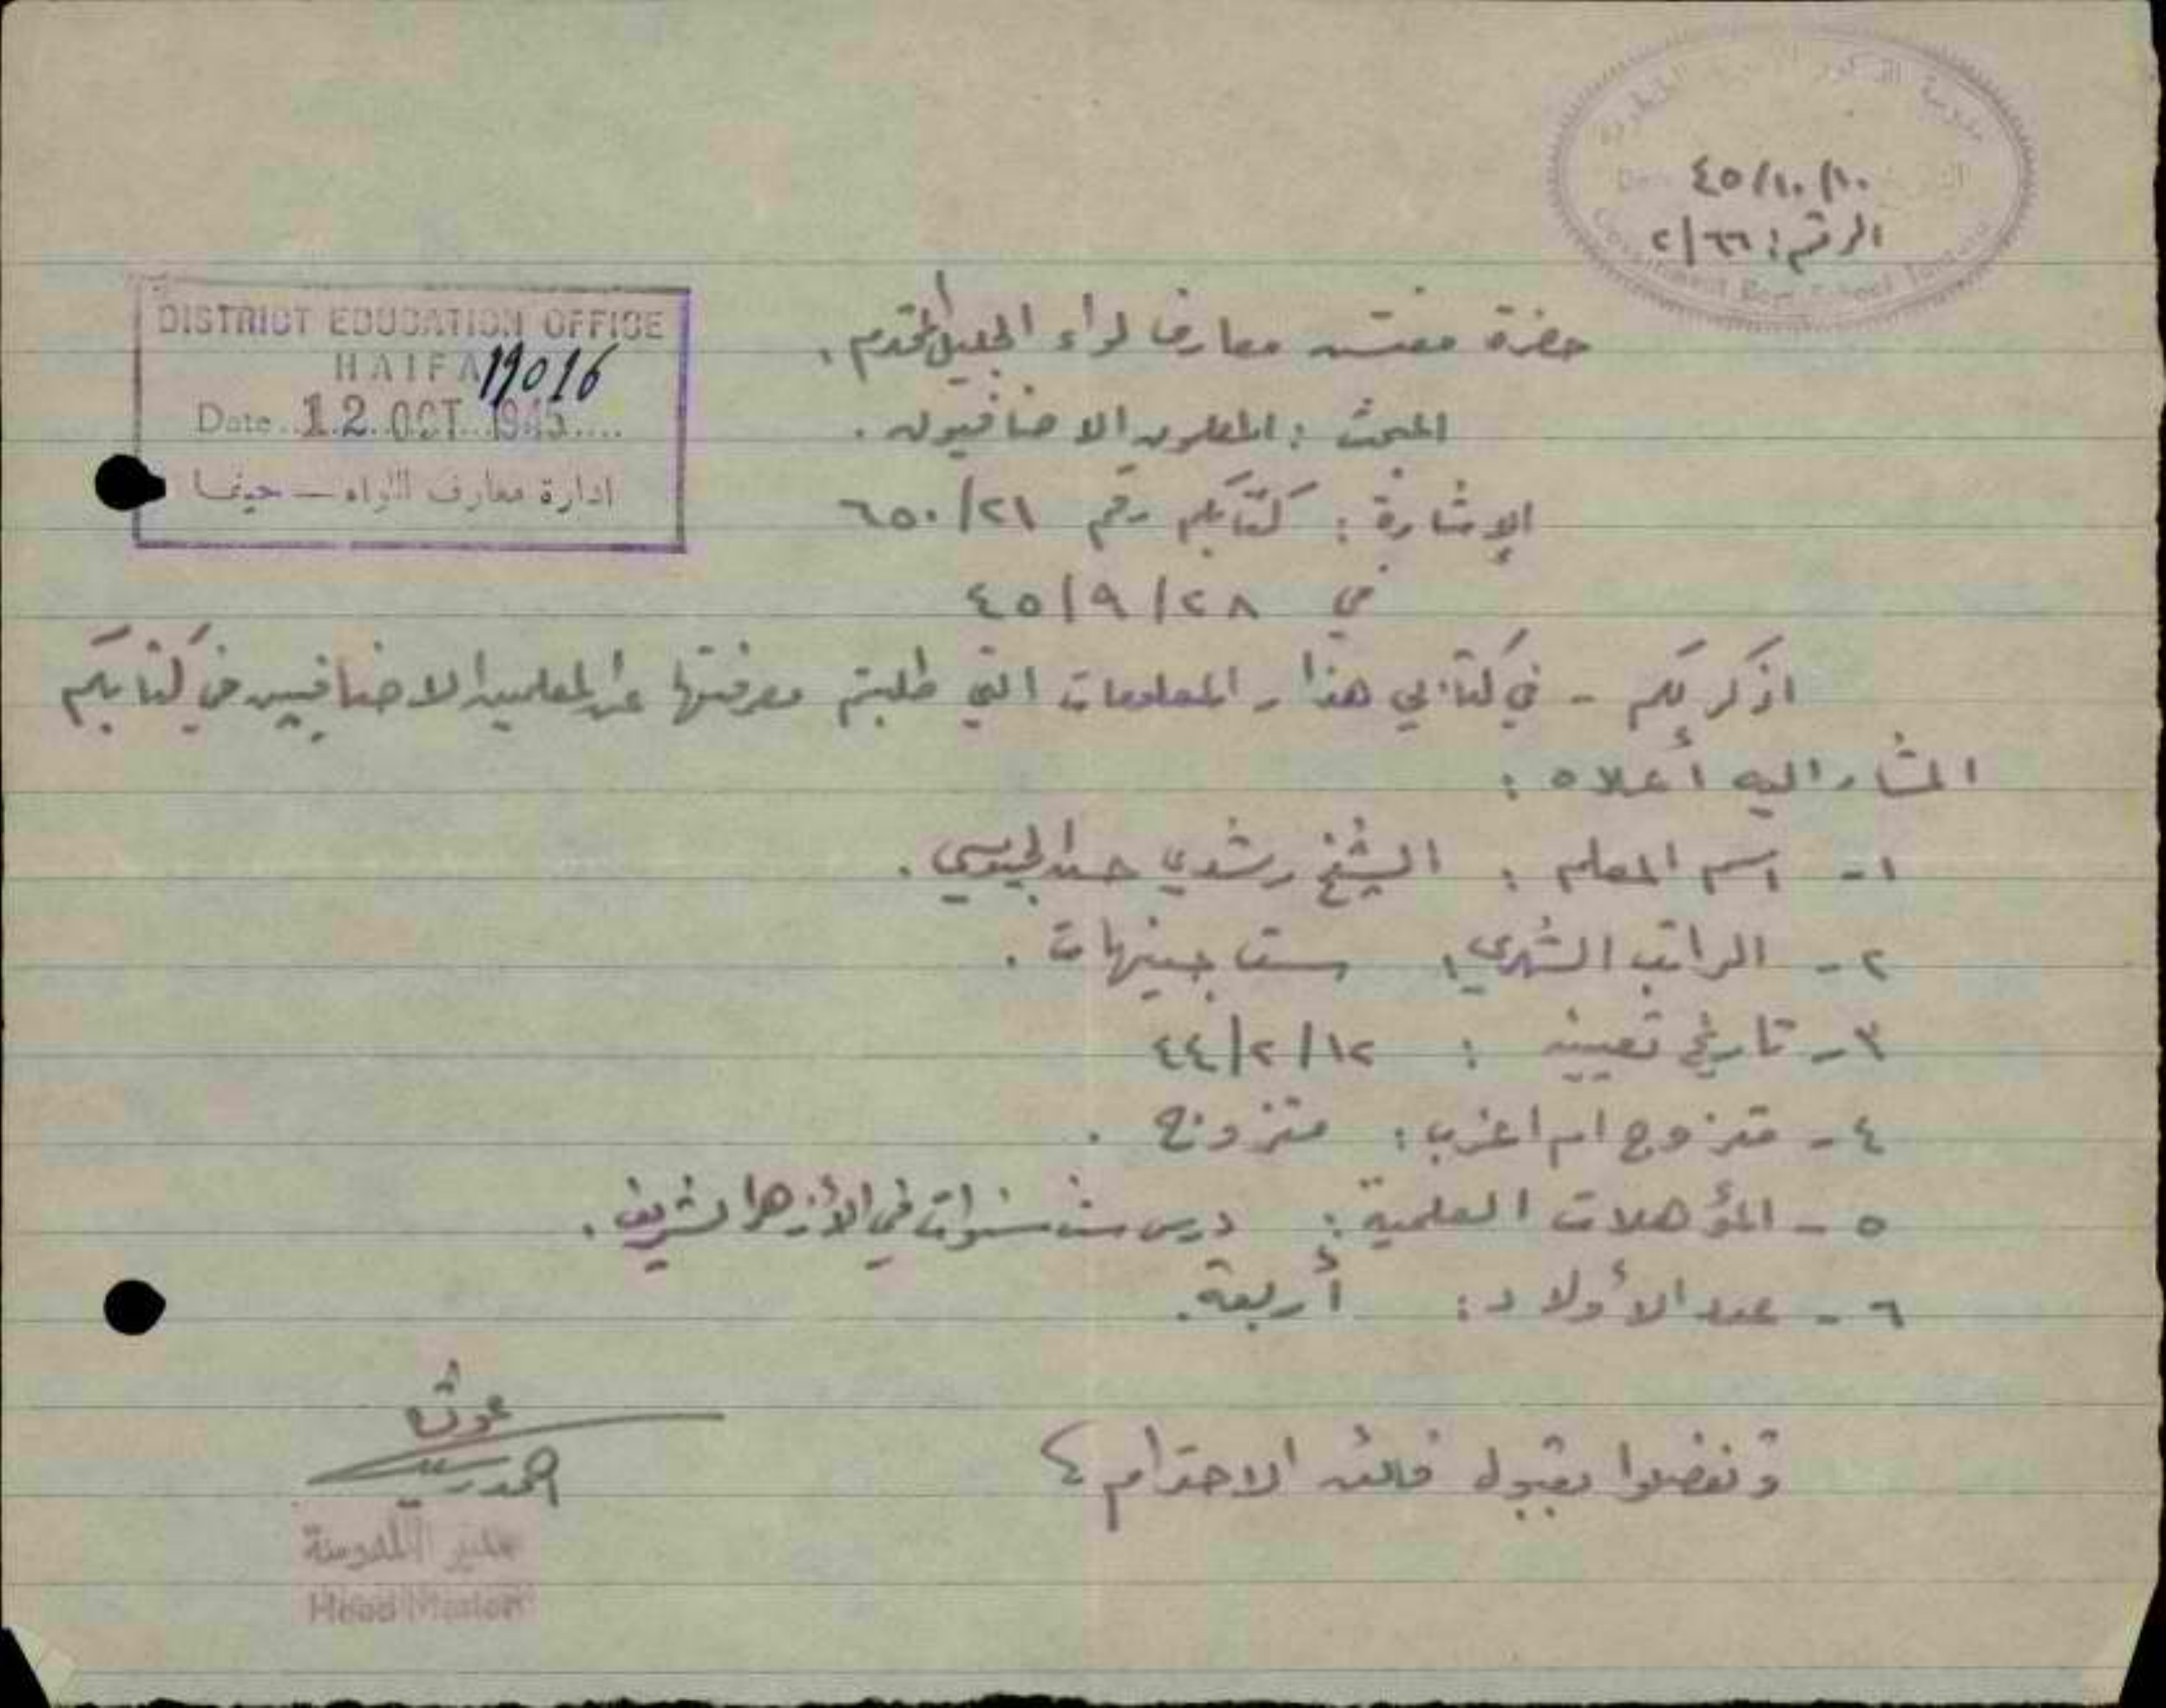 ٤٥/١٠/١٠
الرقم: ٢/٦٦
Government Boys School
DISTRICT EDUCATION OFFICE
HAIFA 19016
Date 12 OCT 1945
ادارة معارف اللواء — حيفا
حضرة مفتش معارف لواء الجليل المحترم،
المبحث: المعلمون الاضافيون.
الإشارة: كتابكم رقم ٦٥٠/٢١
في ٤٥/٩/٢٨
اذكر لكم - في كتابي هذا - المعلومات التي طلبتم معرفتها عن المعلمين الاضافيين في كتابكم
المشار اليه أعلاه:
١- اسم المعلم: الشيخ رشدي حسن الجيوسي.
٢- الراتب الشهري: ست جنيهات.
٣- تاريخ تعيينه: ٤٤/٢/١٢
٤- متزوج ام اعزب: متزوج.
٥- المؤهلات العلمية: درس ست سنوات في الأزهر الشريف.
٦- عدد الأولاد: أربعة.
وتفضلوا بقبول فائق الاحترام
مدير المدرسة
Head Master